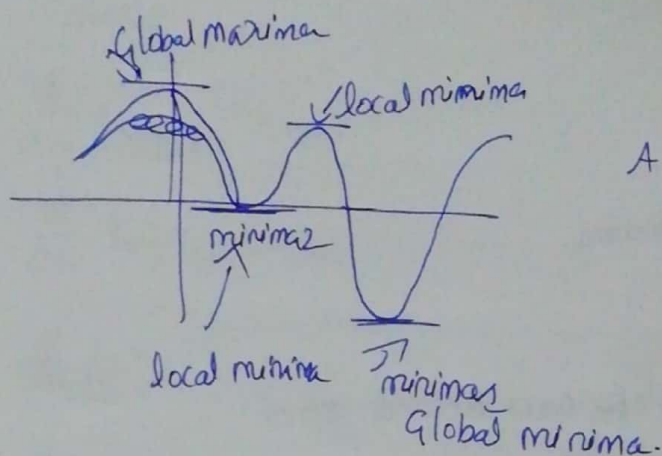 Global maxima
local mimima
A
minima2
local minima
minimas
Global minima.